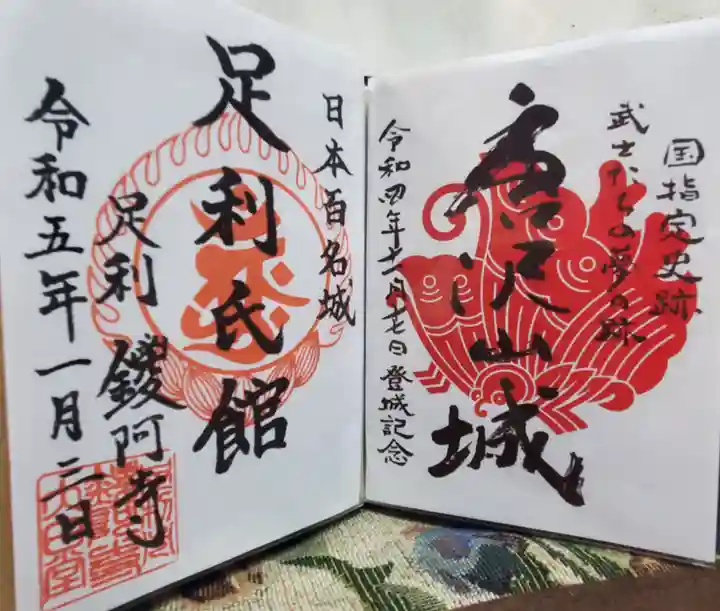 国指定史跡
武士たちの夢の跡
唐沢山城
令和四年十一月十七日登城記念
日本百名城
足利氏館
足利 鑁阿寺
令和五年一月二日